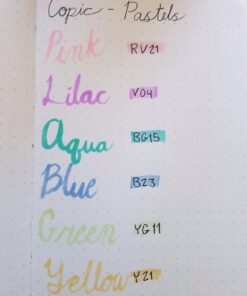 Copic - Pastels
Pink RV21
Lilac V04
Aqua BG15
Blue B23
Green YG11
Yellow Y21